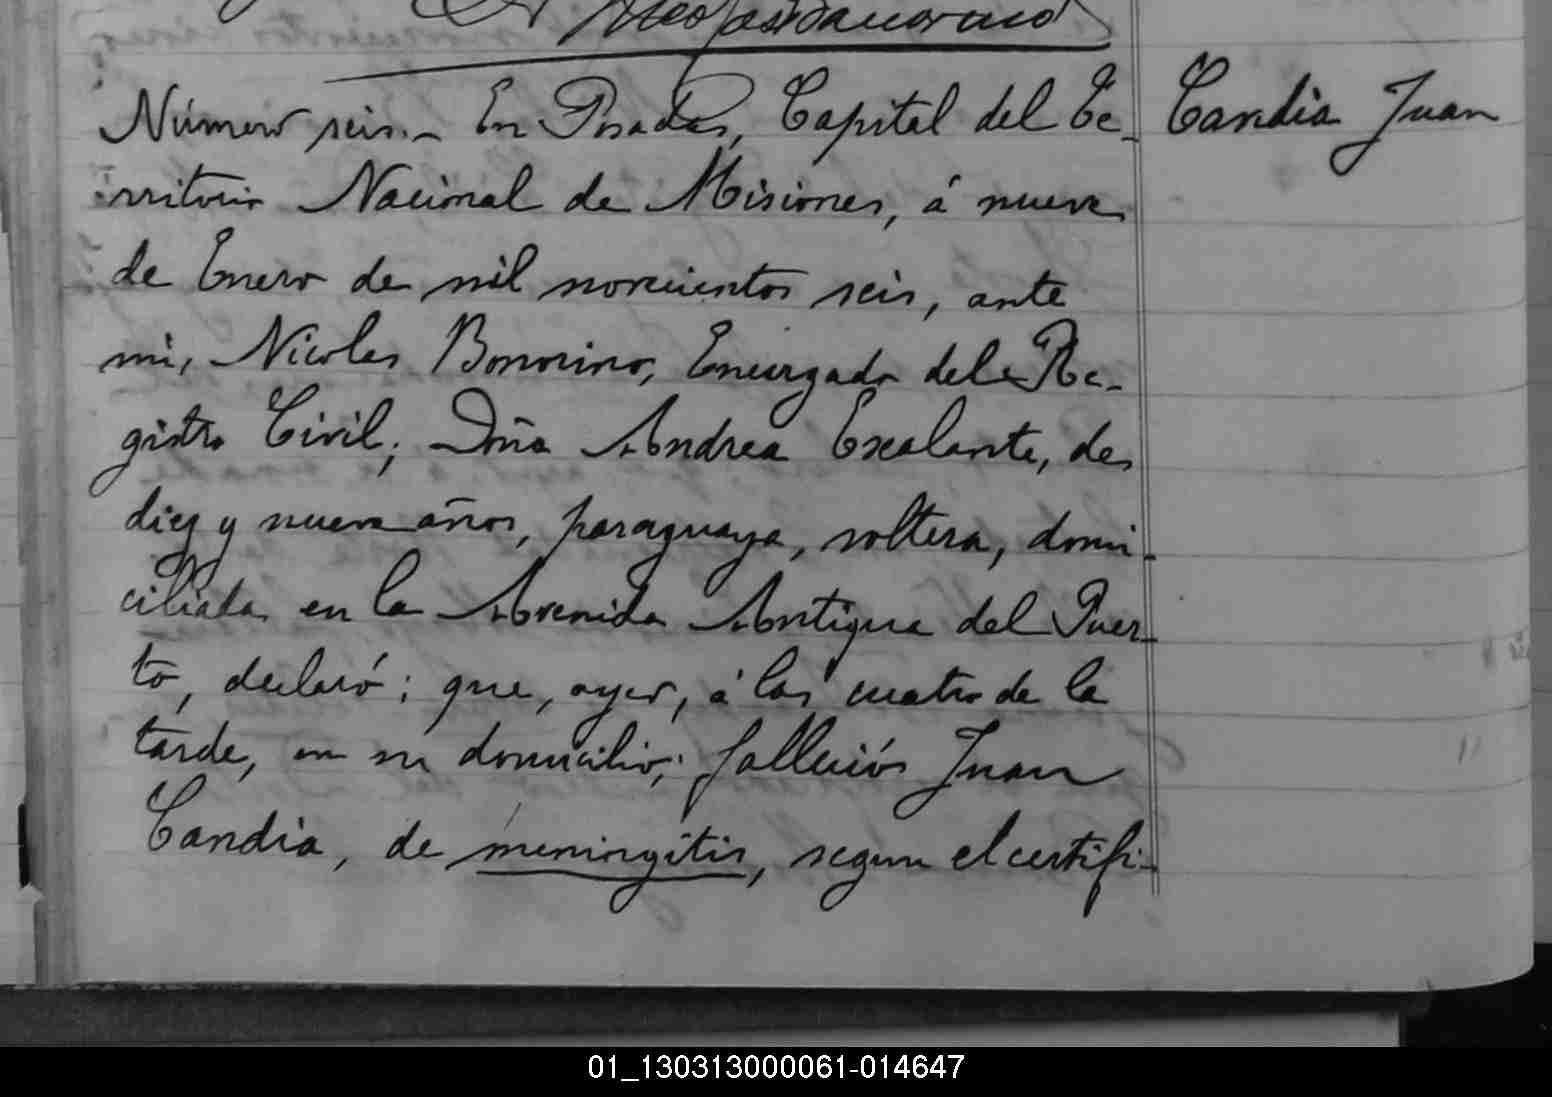 Número seis.- En Posadas, Capital del Te-
rritorio Nacional de Misiones, á nueve
de Enero de mil novecientos seis, ante
mi, Nicolas Bonorino, Encargado del Re-
gistro Civil; Doña Andrea Escalante, de
diez y nueve años, paraguaya, soltera, domi-
ciliada en la Avenida Antigua del Puer-
to, declaró: que, ayer, á las cuatro de la
tarde, en su domicilio; falleció Juan
Candia, de meningitis, segun el certifi-
Candia Juan
01_130313000061-014647